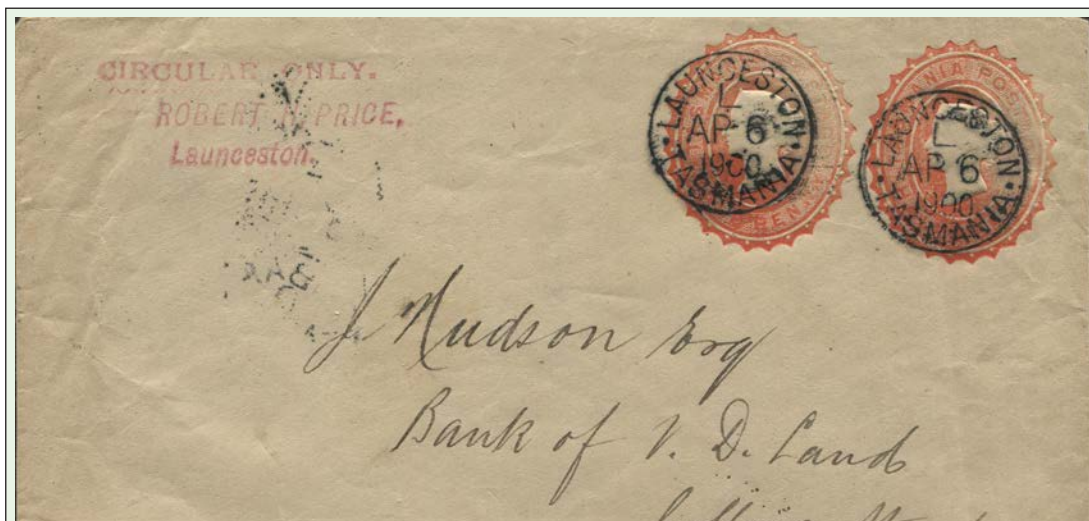 CIRCULAR ONLY.
ROBERT H. PRICE,
Launceston.
LAUNCESTON
L
AP 6
1900
TASMANIA
PENNY
LAUNCESTON
L
AP 6
1900
TASMANIA
POST
J Hudson Esq
Bank of V. D. Land